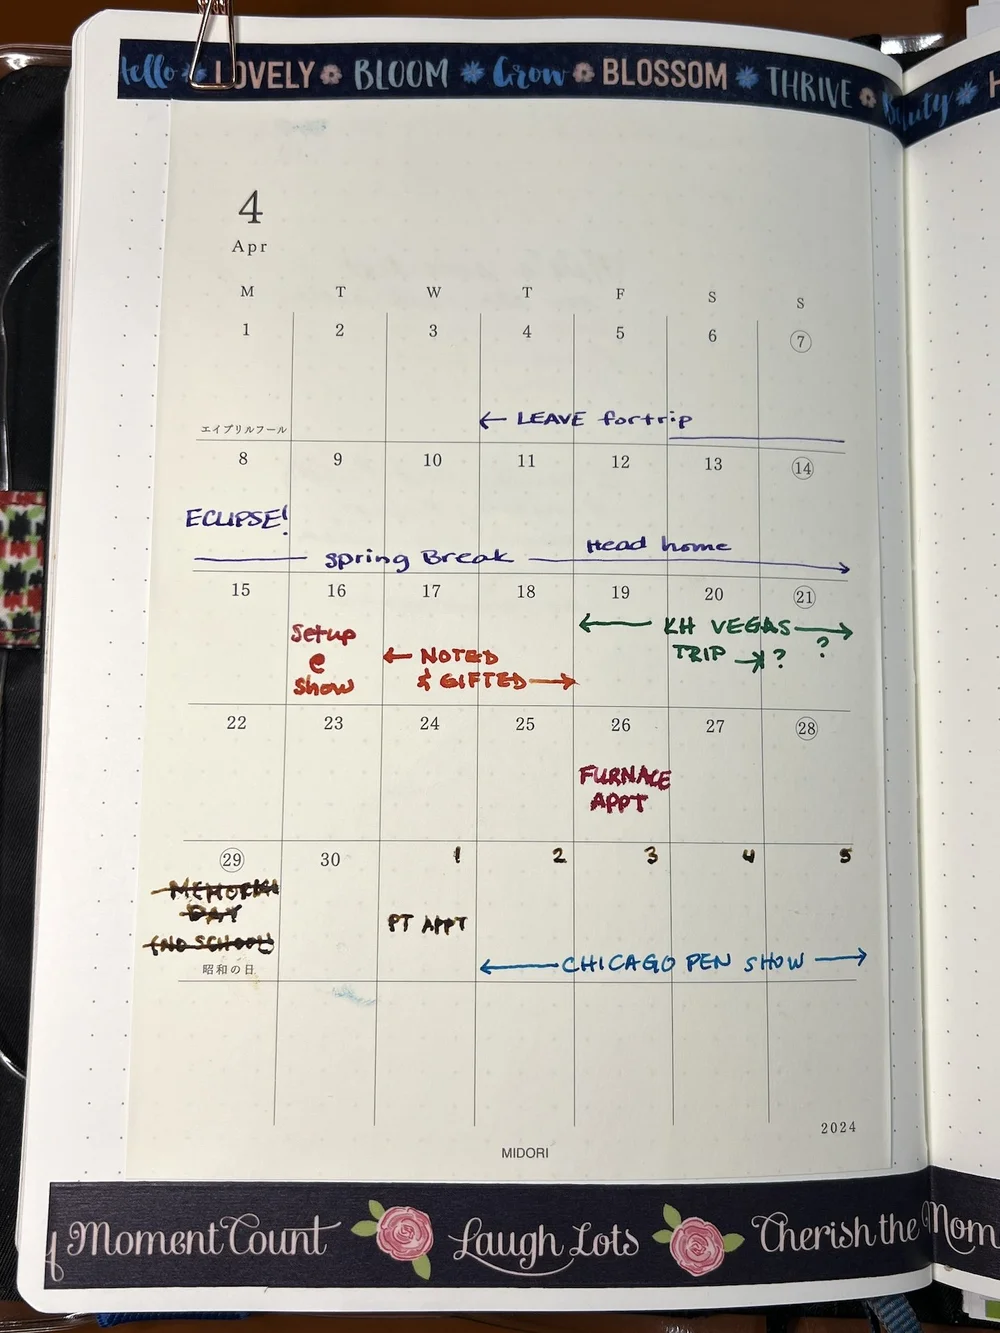 Hello LOVELY BLOOM Grow BLOSSOM THRIVE Beauty H
4
Apr
M T W T F S S
1 2 3 4 5 6 7
← LEAVE for trip
エイプリルフール
8 9 10 11 12 13 14
ECLIPSE!
spring Break Head home →
15 16 17 18 19 20 21
Setup
@
Show
← NOTED
& GIFTED →
← KH VEGAS →
TRIP → ? ?
22 23 24 25 26 27 28
FURNACE
APPT
29 30 1 2 3 4 5
MEMORIAL
DAY
(NO SCHOOL)
PT APPT
← CHICAGO PEN SHOW →
昭和の日
2024
MIDORI
Moment Count Laugh Lots Cherish the Mom